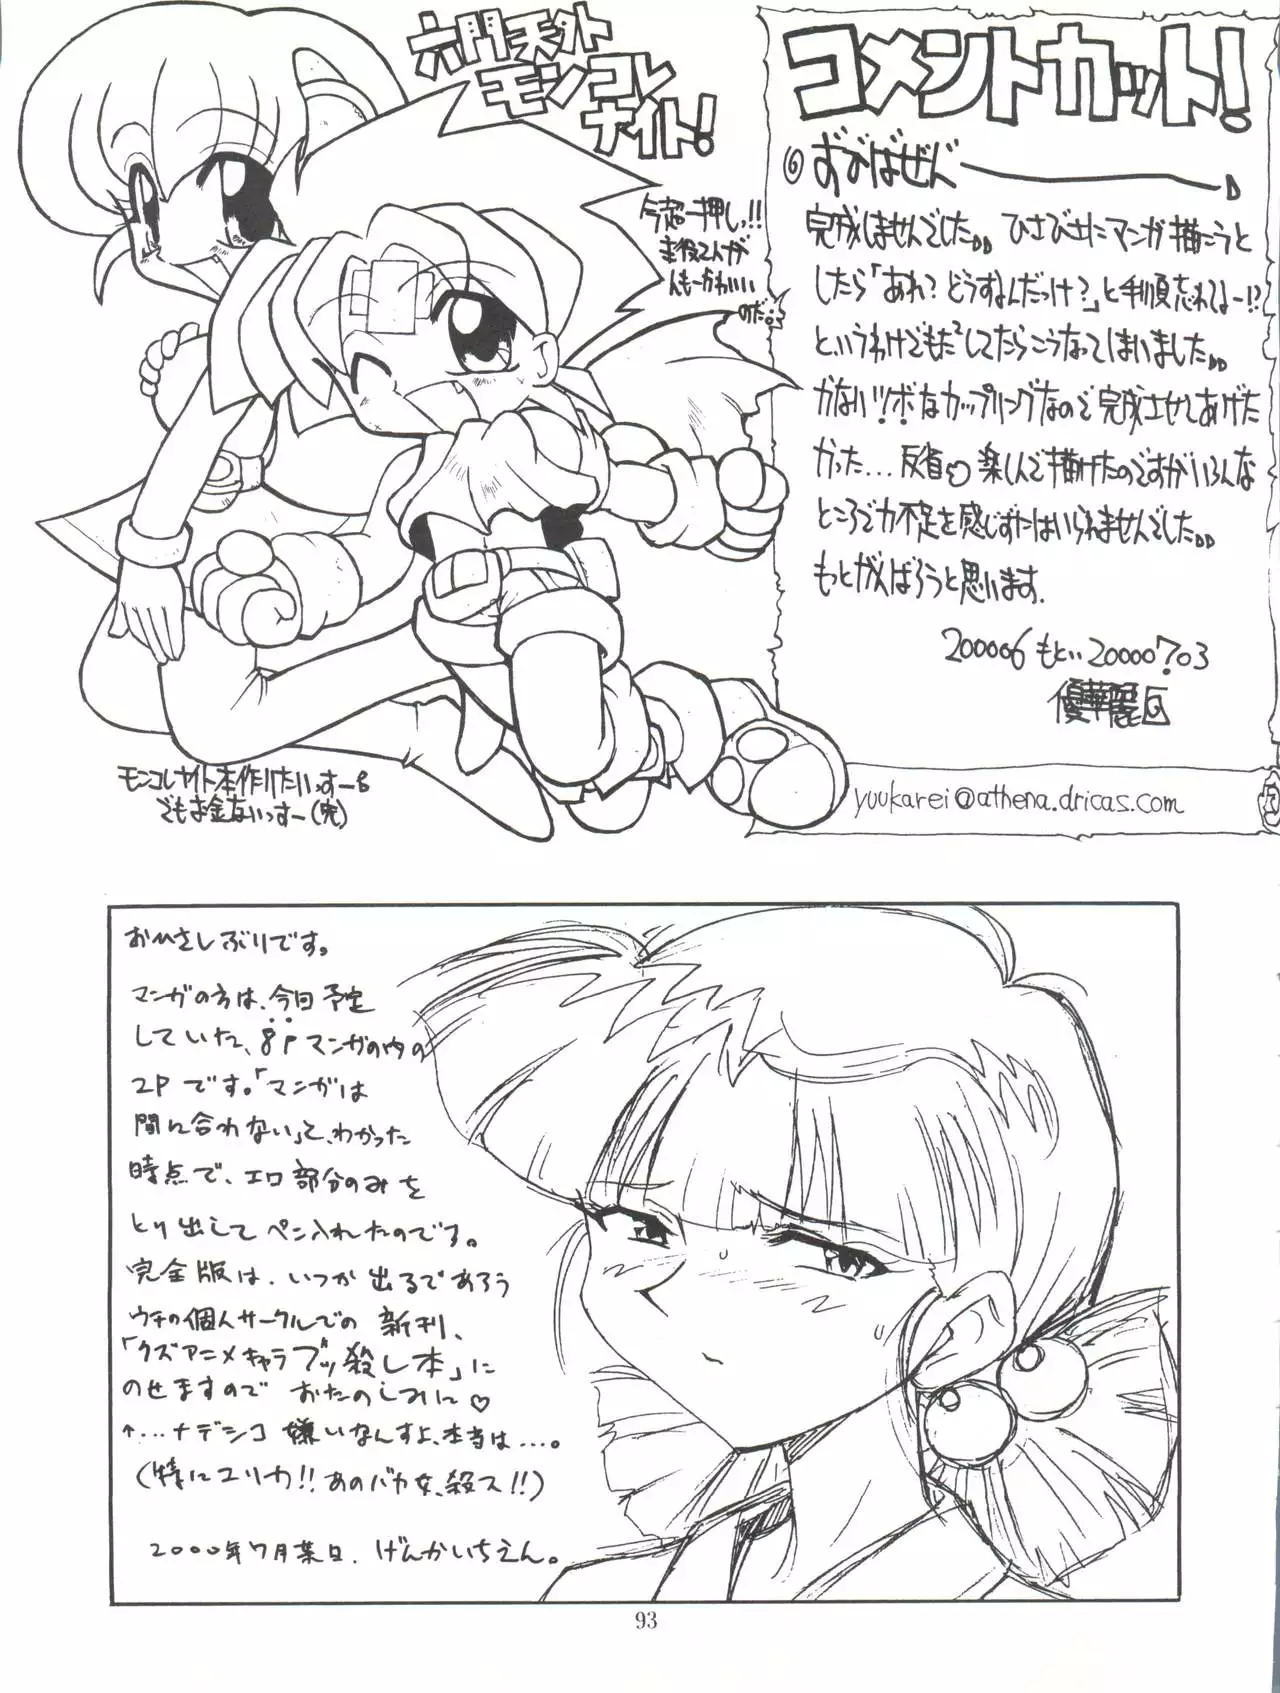 六門天外
モンコレ
ナイト!
今超一押し!!
主役2人が
んもーかわいい
のだ。
モンコレナイト本作りたいっすー
でもお金ないっすー
コメントカット!
完成しませんでした。ひさびさにマンガ描こうと
したら「あれ?どうすんだっけ?」と手順忘れてるー!?
というわけでもた²してたらこうなってしまいました。
かなりツボなカップリングなので完成させてあげた
かった...反省 楽しんで描けたのですがいろんな
ところで力不足を感じずにはいられませんでした。
もっとがんばろうと思います.
200006もとい20000703
優華麗
yuukarei@athena.dricas.com
おひさしぶりです。
マンガの方は、今日予定
していた、8Pマンガの内の
2Pです。「マンガは
間に合わない」と、わかった
時点で、エロ部分のみを
とり出してペン入れたのです。
完全版は、いつか出るであろう
ウチの個人サークルでの新刊、
「クズアニメキャラブッ殺し本」に
のせますのでおたのしみに♡
↑...ナデシコ嫌いなんすよ、本当は...。
(特にユリカ!!あのバカ女、殺ス!!)
2000年7月某日. げんかいちえん。
93